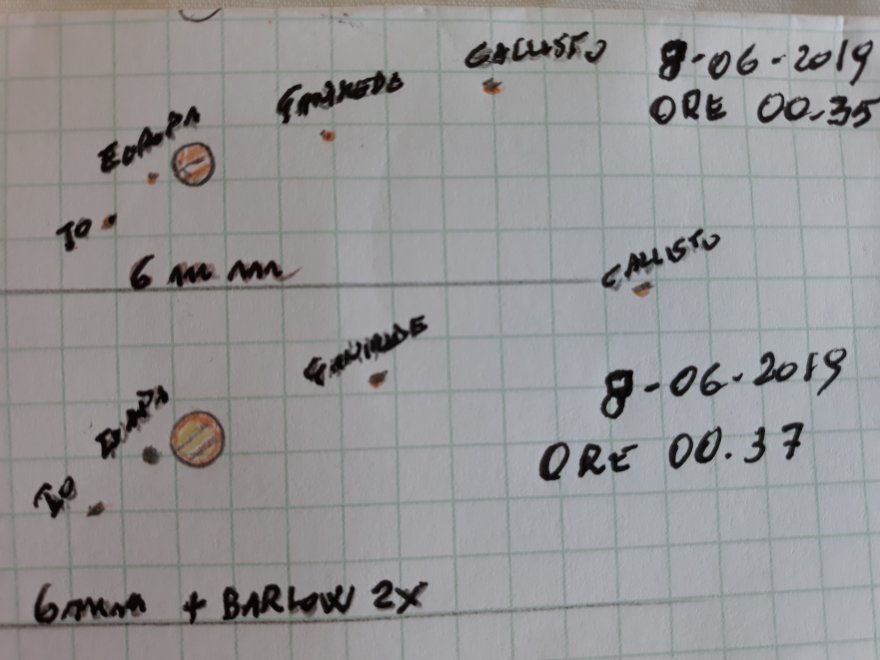 CALLISTO
8-06-2019
GANIMEDE
ORE 00.35
EUROPA
IO
6 mm
CALLISTO
GANIMEDE
8-06-2019
EUROPA
ORE 00.37
IO
6mm + BARLOW 2X